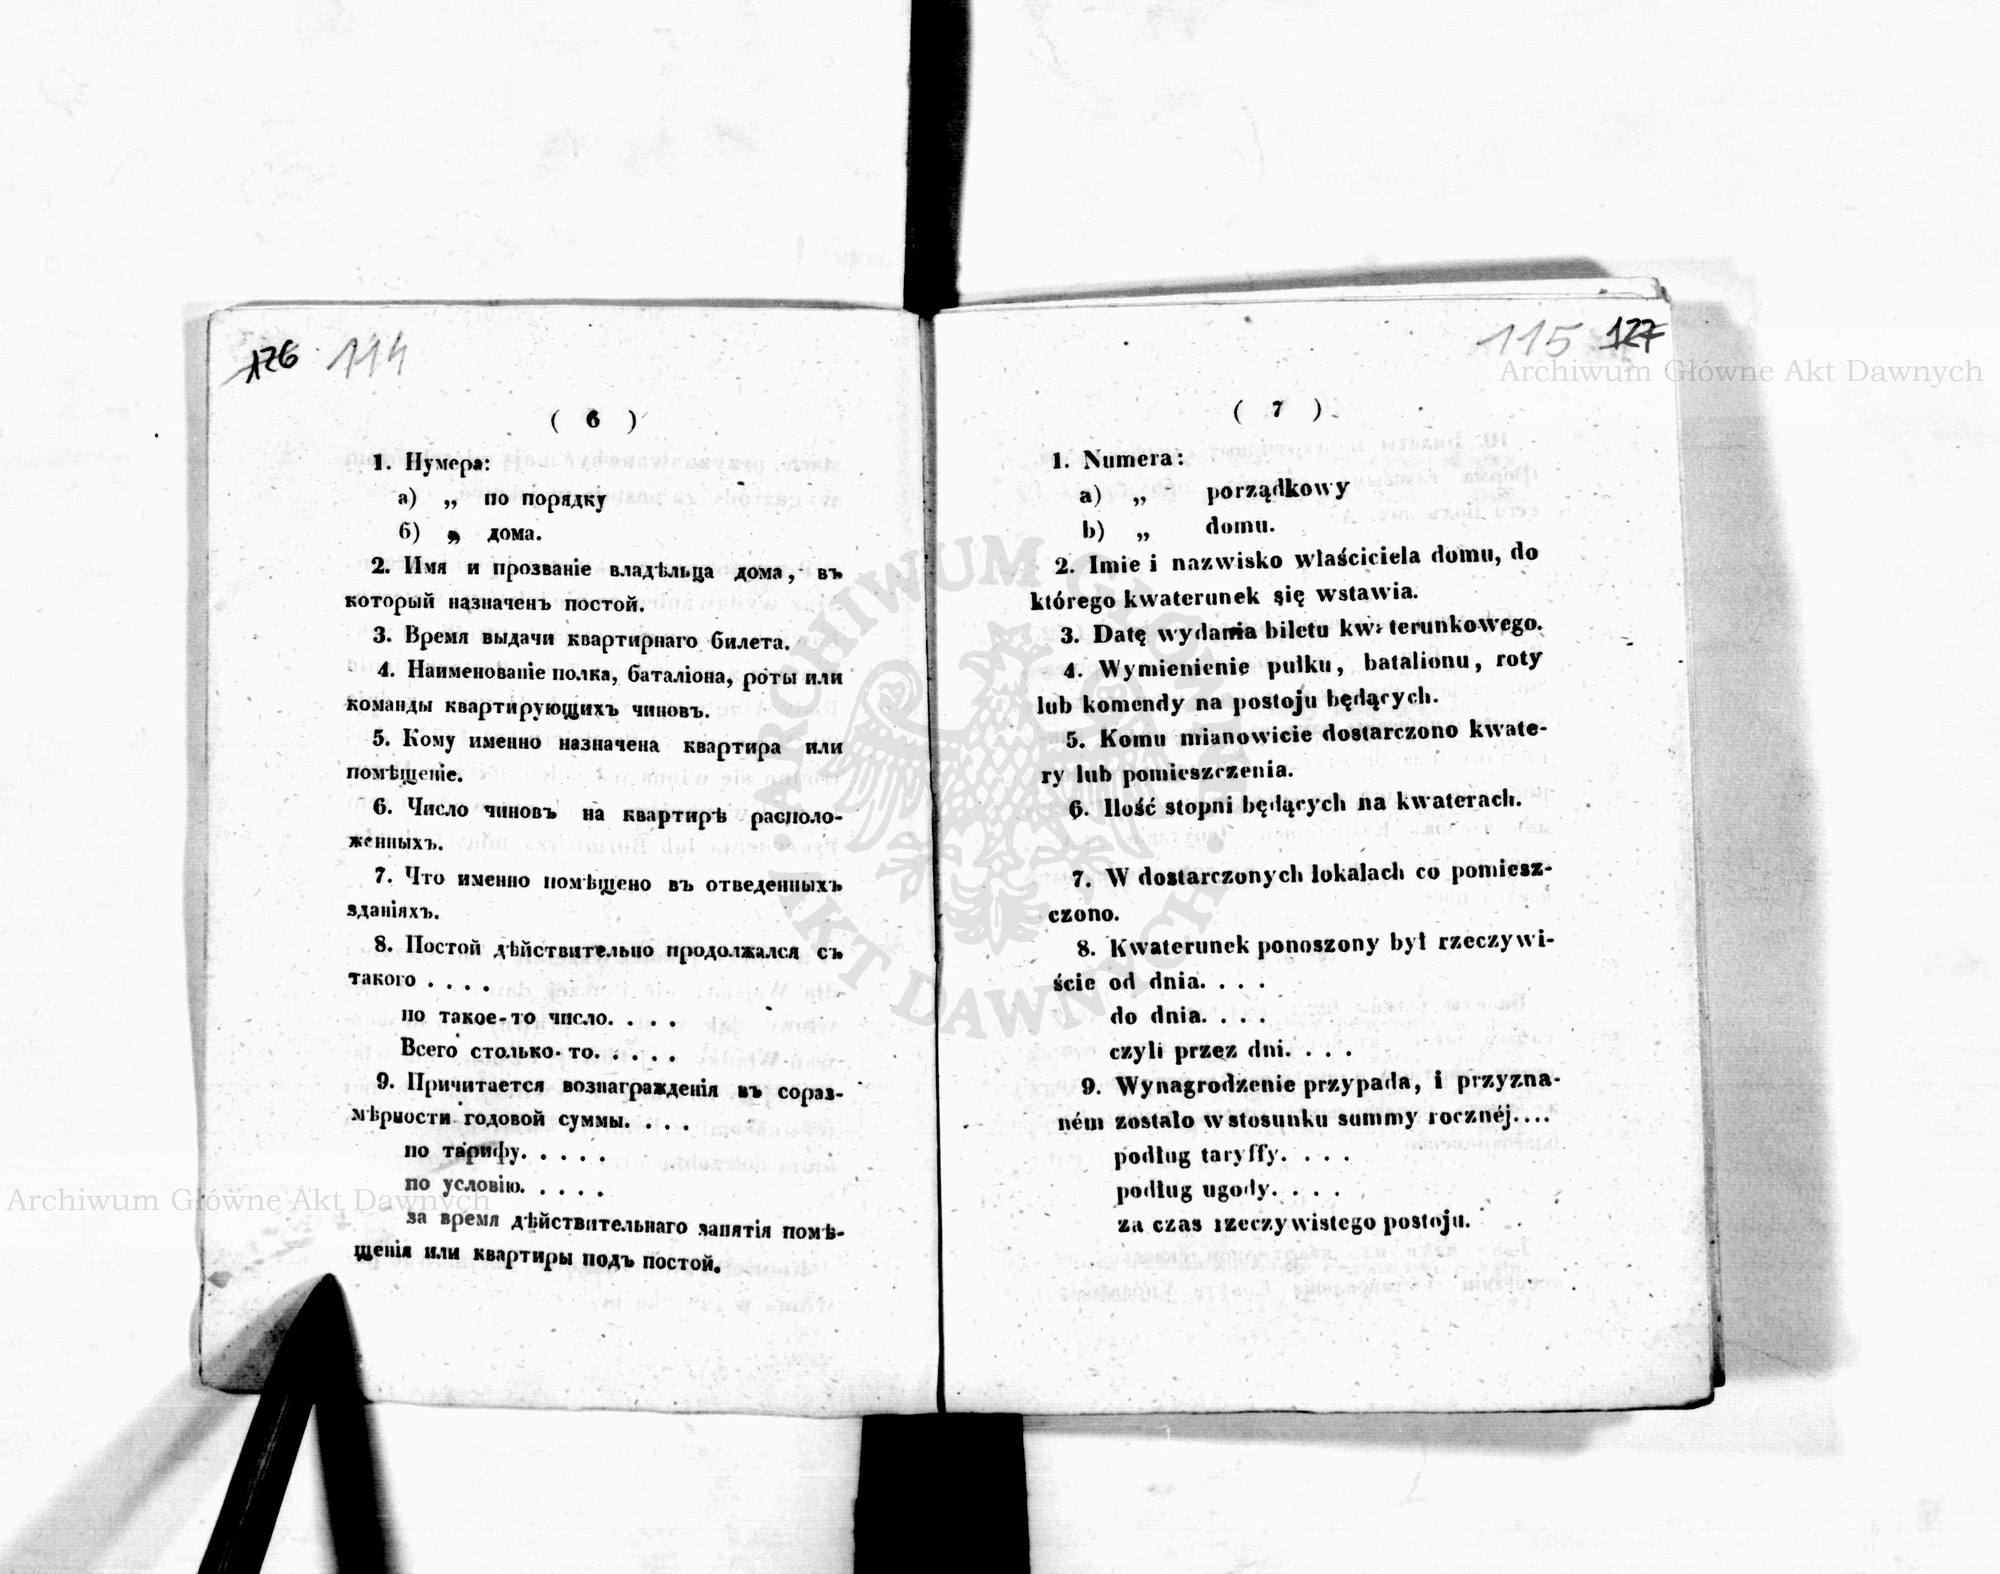 126 114
( 6 )
1. Нумера:
а) „ по порядку
б) „ дома.
2. Имя и прозваніе владѣльца дома, въ
который назначенъ постой.
3. Время выдачи квартирнаго билета.
4. Наименованіе полка, баталіона, роты или
команды квартирующихъ чиновъ.
5. Кому именно назначена квартира или
помѣщеніе.
6. Число чиновъ на квартирѣ располо-
женныхъ.
7. Что именно помѣщено въ отведенныхъ
зданіяхъ.
8. Постой дѣйствительно продолжался съ
такого . . . .
по такое-то число. . . .
Всего столько-то. . . . .
9. Причитается вознагражденія въ сораз-
мѣрности годовой суммы. . . .
по тарифу. . . . .
по условію. . . . .
за время дѣйствительнаго занятія помѣ-
щенія или квартиры подъ постой.
115 127
( 7 )
1. Numera:
a) „ porządkowy
b) „ domu.
2. Imie i nazwisko właściciela domu, do
którego kwaterunek się wstawia.
3. Datę wydania biletu kwaterunkowego.
4. Wymienienie pułku, batalionu, roty
lub komendy na postoju będących.
5. Komu mianowicie dostarczono kwate-
ry lub pomieszczenia.
6. Ilość stopni będących na kwaterach.
7. W dostarczonych lokalach co pomiesz-
czono.
8. Kwaterunek ponoszony był rzeczywi-
ście od dnia. . . .
do dnia. . . .
czyli przez dni. . . .
9. Wynagrodzenie przypada, i przyzna-
ném zostało w stosunku summy rocznéj....
podług taryffy. . . .
podług ugody. . . .
za czas rzeczywistego postoju.
Archiwum Główne Akt Dawnych
Archiwum Główne Akt Dawnych
ARCHIWUM GŁÓWNE
AKT DAWNYCH